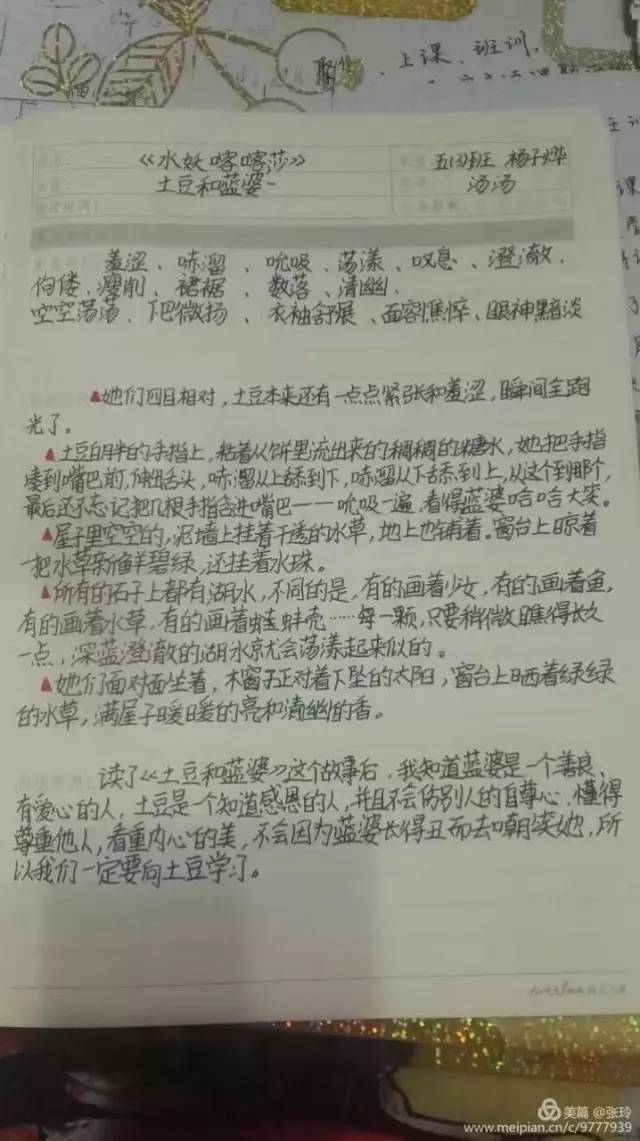 上课、班训,
《水妖喀喀莎》
五(3)班 杨子烨
土豆和蓝婆
汤汤
羞涩、哧溜、吮吸、荡漾、叹息、澄澈、
佝偻、瘦削、裙裾、数落、清幽、
空空荡荡、下巴微扬、衣袖舒展、面容憔悴、眼神黯淡
▲她们四目相对,土豆本来还有一点点紧张和羞涩,瞬间全跑
光了。
▲土豆白胖的手指上,粘着从饼里流出来的稠稠的糖水,她把手指
凑到嘴巴前,伸出舌头,哧溜从上舔到下,哧溜从下舔到上,从这个到那个,
最后还不忘记把几根手指含进嘴巴一一吮吸一遍,看得蓝婆哈哈大笑。
▲屋子里空空的,泥墙上挂着干透的水草,地上也铺着。窗台上晾着
一把水草新鲜碧绿,还挂着水珠。
▲所有的石子上都有湖水,不同的是,有的画着少女,有的画着鱼,
有的画着水草,有的画着蛙蚌壳……每一颗,只要稍微瞧得长久
一点,深蓝澄澈的湖水就会荡漾起来似的。
▲她们面对面坐着,木窗子正对着下坠的太阳,窗台上晒着绿绿
的水草,满屋子暖暖的亮和清幽的香。
读了《土豆和蓝婆》这个故事后,我知道蓝婆是一个善良、
有爱心的人,土豆是一个知道感恩的人,并且不会伤别人的自尊心,懂得
尊重他人,看重内心的美,不会因为蓝婆长得丑而去嘲笑她,所
以我们一定要向土豆学习。
美篇 @张玲
www.meipian.cn/c/9777939